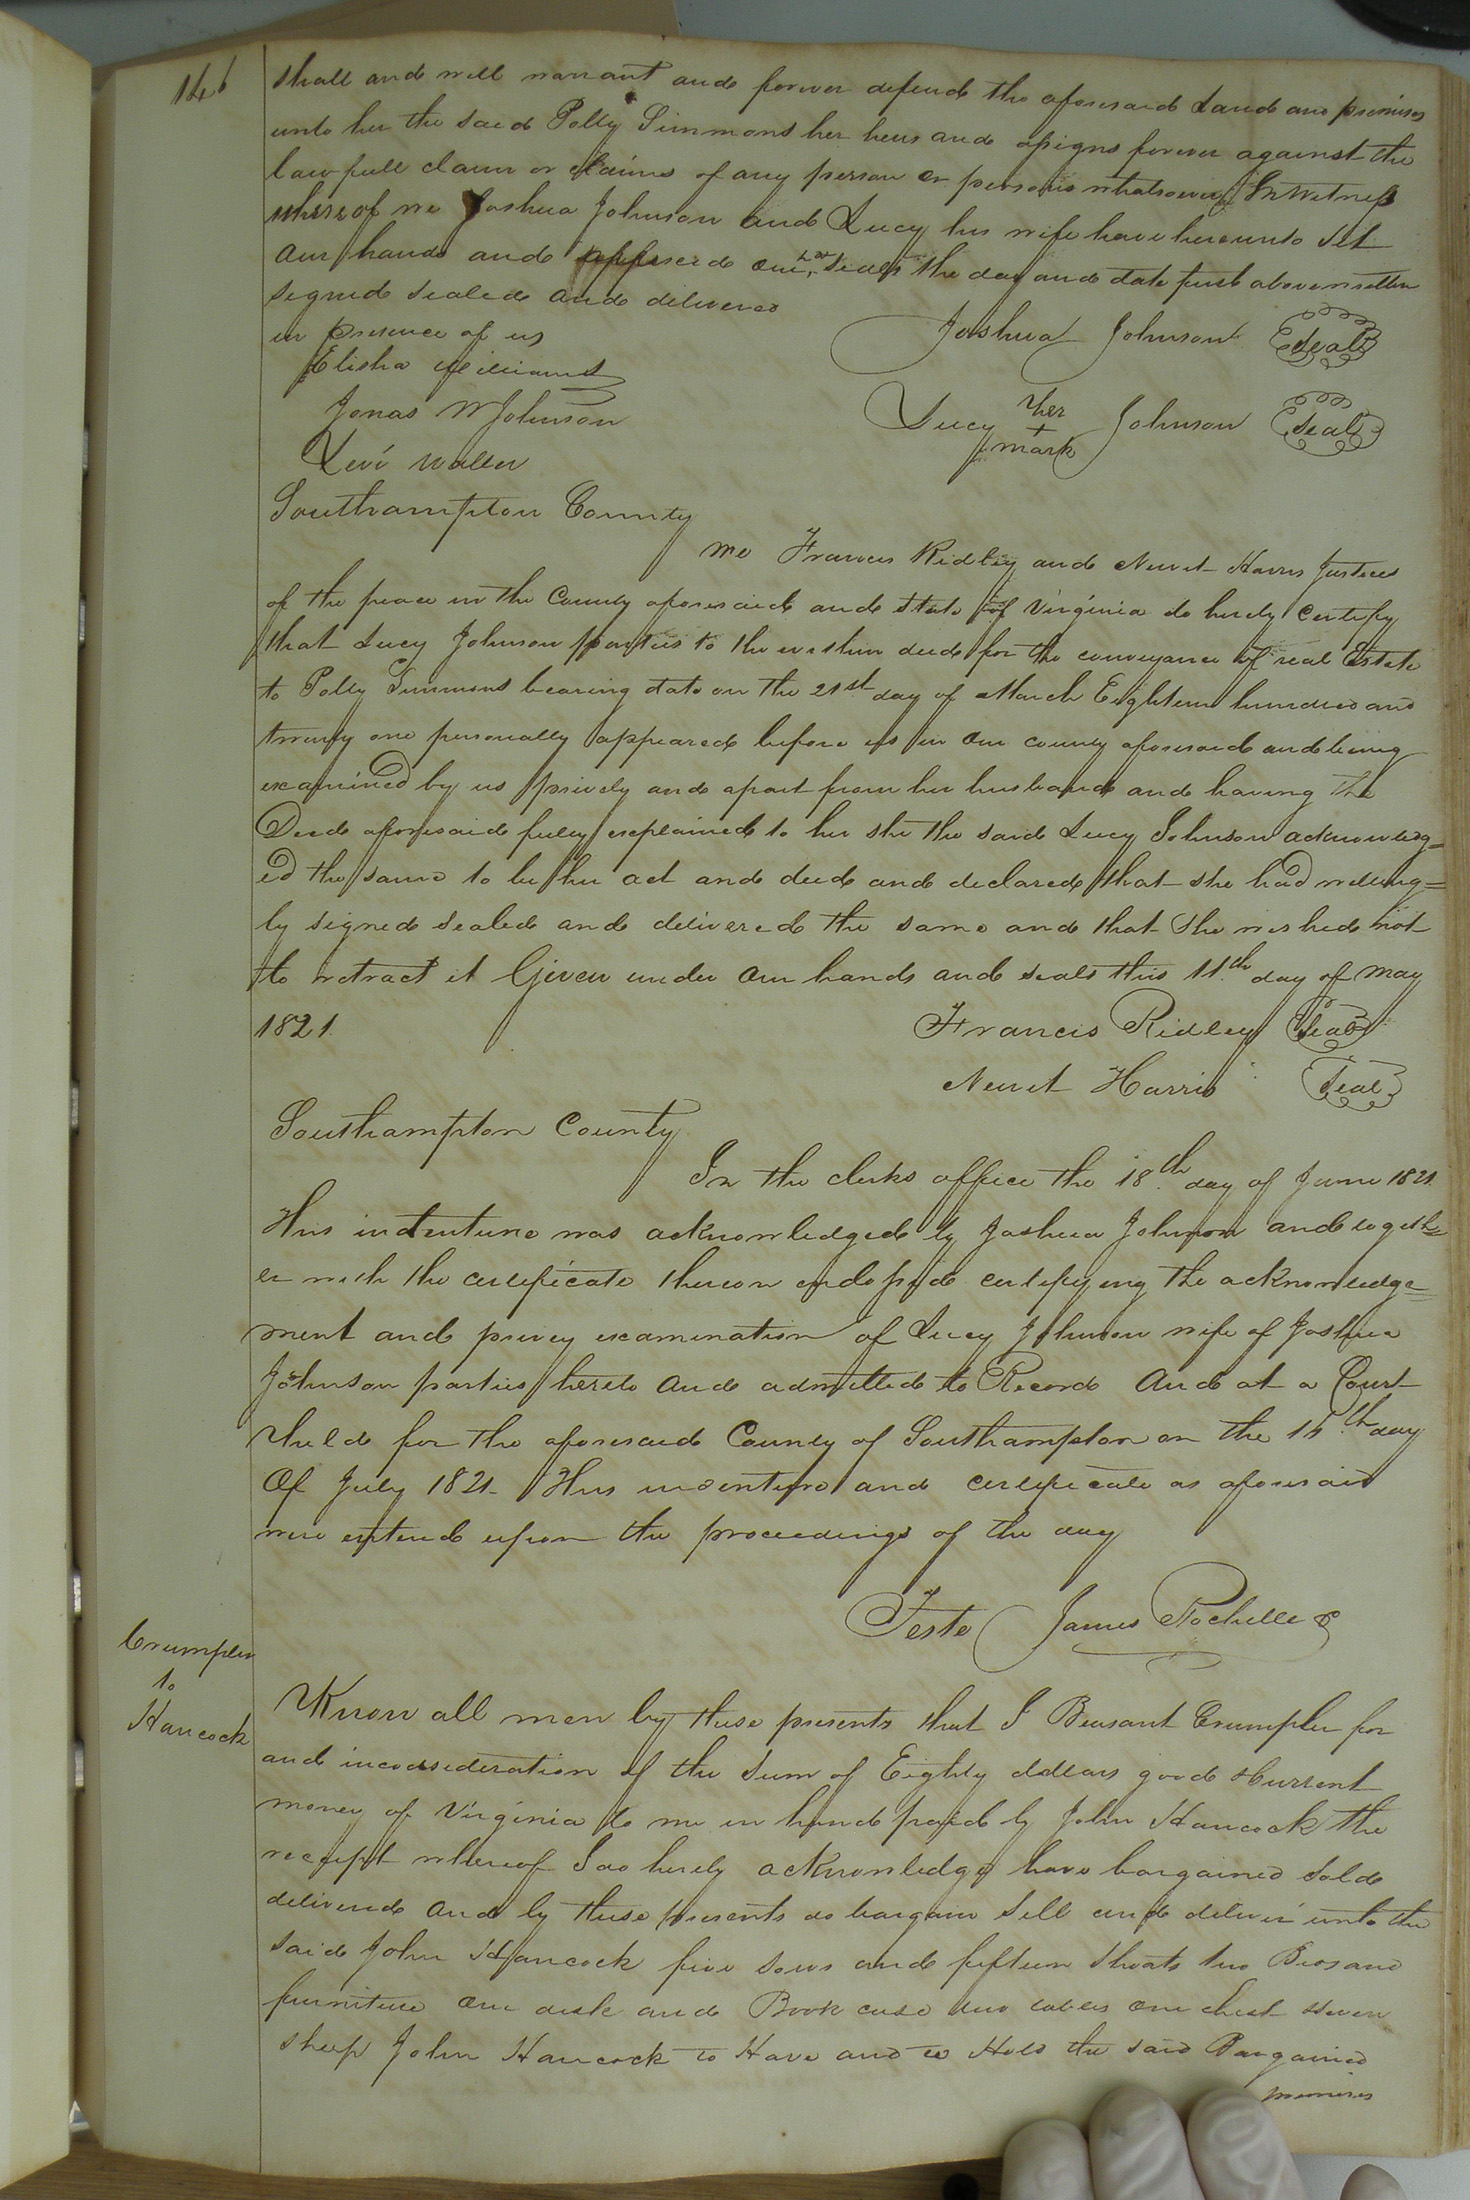 146
shall and will warrant and forever defend the aforesaid Land and premises
unto her the said Polly Simmons her heirs and assigns forever against the
lawfull claim or claims of any person or persons whatsoever In Witness
whereof we Joshua Johnson and Lucy his wife have hereunto set
our hands and affixed our seals the day and date first above written
signed sealed and delivered
in presence of us
Joshua Johnson Seal
Elisha Williams
Jonas W Johnson
Lucy her + mark Johnson Seal
Levi Waller
Southampton County
We Francis Ridley and Newit Harris Justices
of the peace in the County aforesaid and State of Virginia do hereby certify
that Lucy Johnson parties to the within deed for the conveyance of real Estate
to Polly Simmons bearing date on the 21st day of March Eighteen hundred and
twenty one personally appeared before us in our county aforesaid and being
examined by us prively and apart from her husband and having the
Deed aforesaid fully explained to her she the said Lucy Johnson acknowledg=
ed the same to be her act and deed and declared that she had willing=
ly signed sealed and delivered the same and that She wished not
to retract it Given under our hands and seals this 11th day of May
1821.
Francis Ridley Seal
Newit Harris Seal
Southampton County
In the clerks office the 18th day of June 1821.
This indenture was acknowledged by Joshua Johnson and togeth=
er with the certificate thereon endorsed certifying the acknowledge=
ment and privey examination of Lucy Johnson wife of Joshua
Johnson parties hereto and admitted to Record And at a Court
held for the aforesaid County of Southampton on the day
Of July 1821. This indenture and certificate as aforesaid
were entered upon the proceedings of the day
Teste James Rochelle C
Crumpler
to
Hancock
Know all men by these presents that I Beasant Crumpler for
and in consideration of the Sum of Eighty dollars good current
money of Virginia to me in hand paid by John Hancock the
receipt whereof I do hereby acknowledge have bargained Sold
delivered and by these presents do bargain Sell and deliver unto the
said John Hancock five sows and fifteen Shoats two Beds and
furniture one desk and Book case two tables one chest seven
sheep John Hancock to Have and to Hold the said Bargained
premises